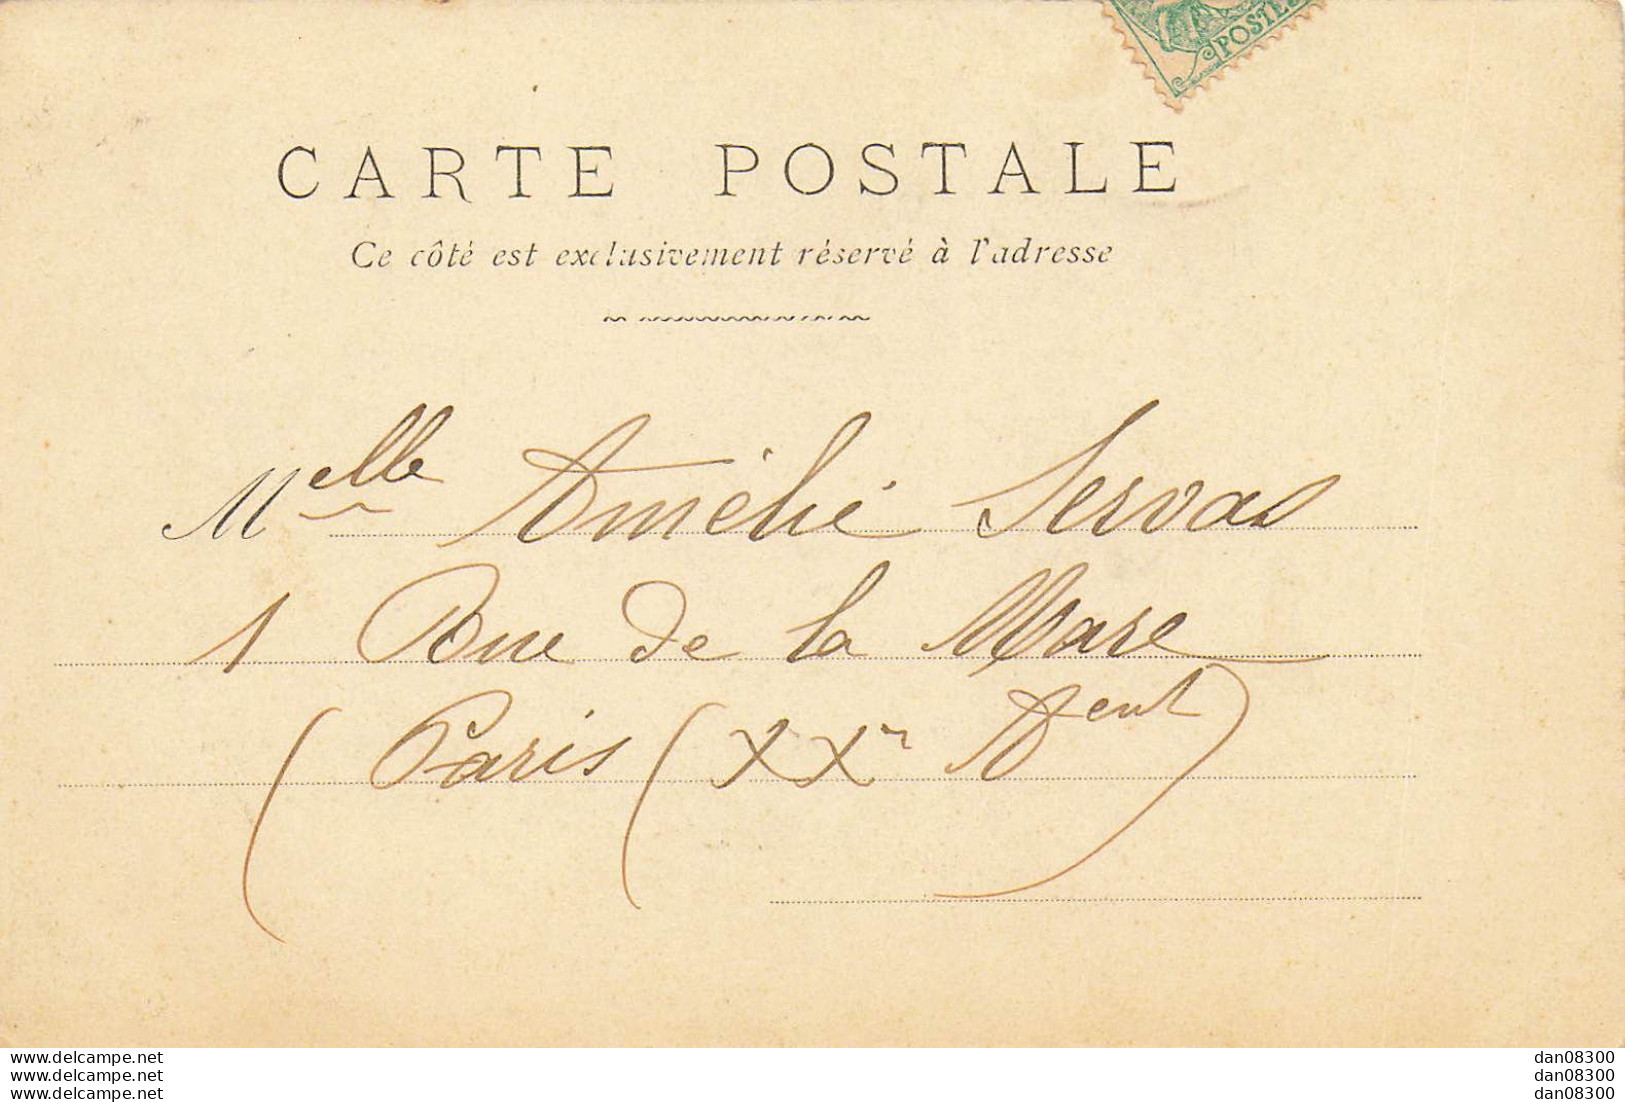 POSTES
CARTE POSTALE
Ce côté est exclusivement réservé à l'adresse
Melle Amélie Servas
1 Rue de la Mare
(Paris (XXe Arent)
www.delcampe.net dan08300
www.delcampe.net dan08300
www.delcampe.net dan08300